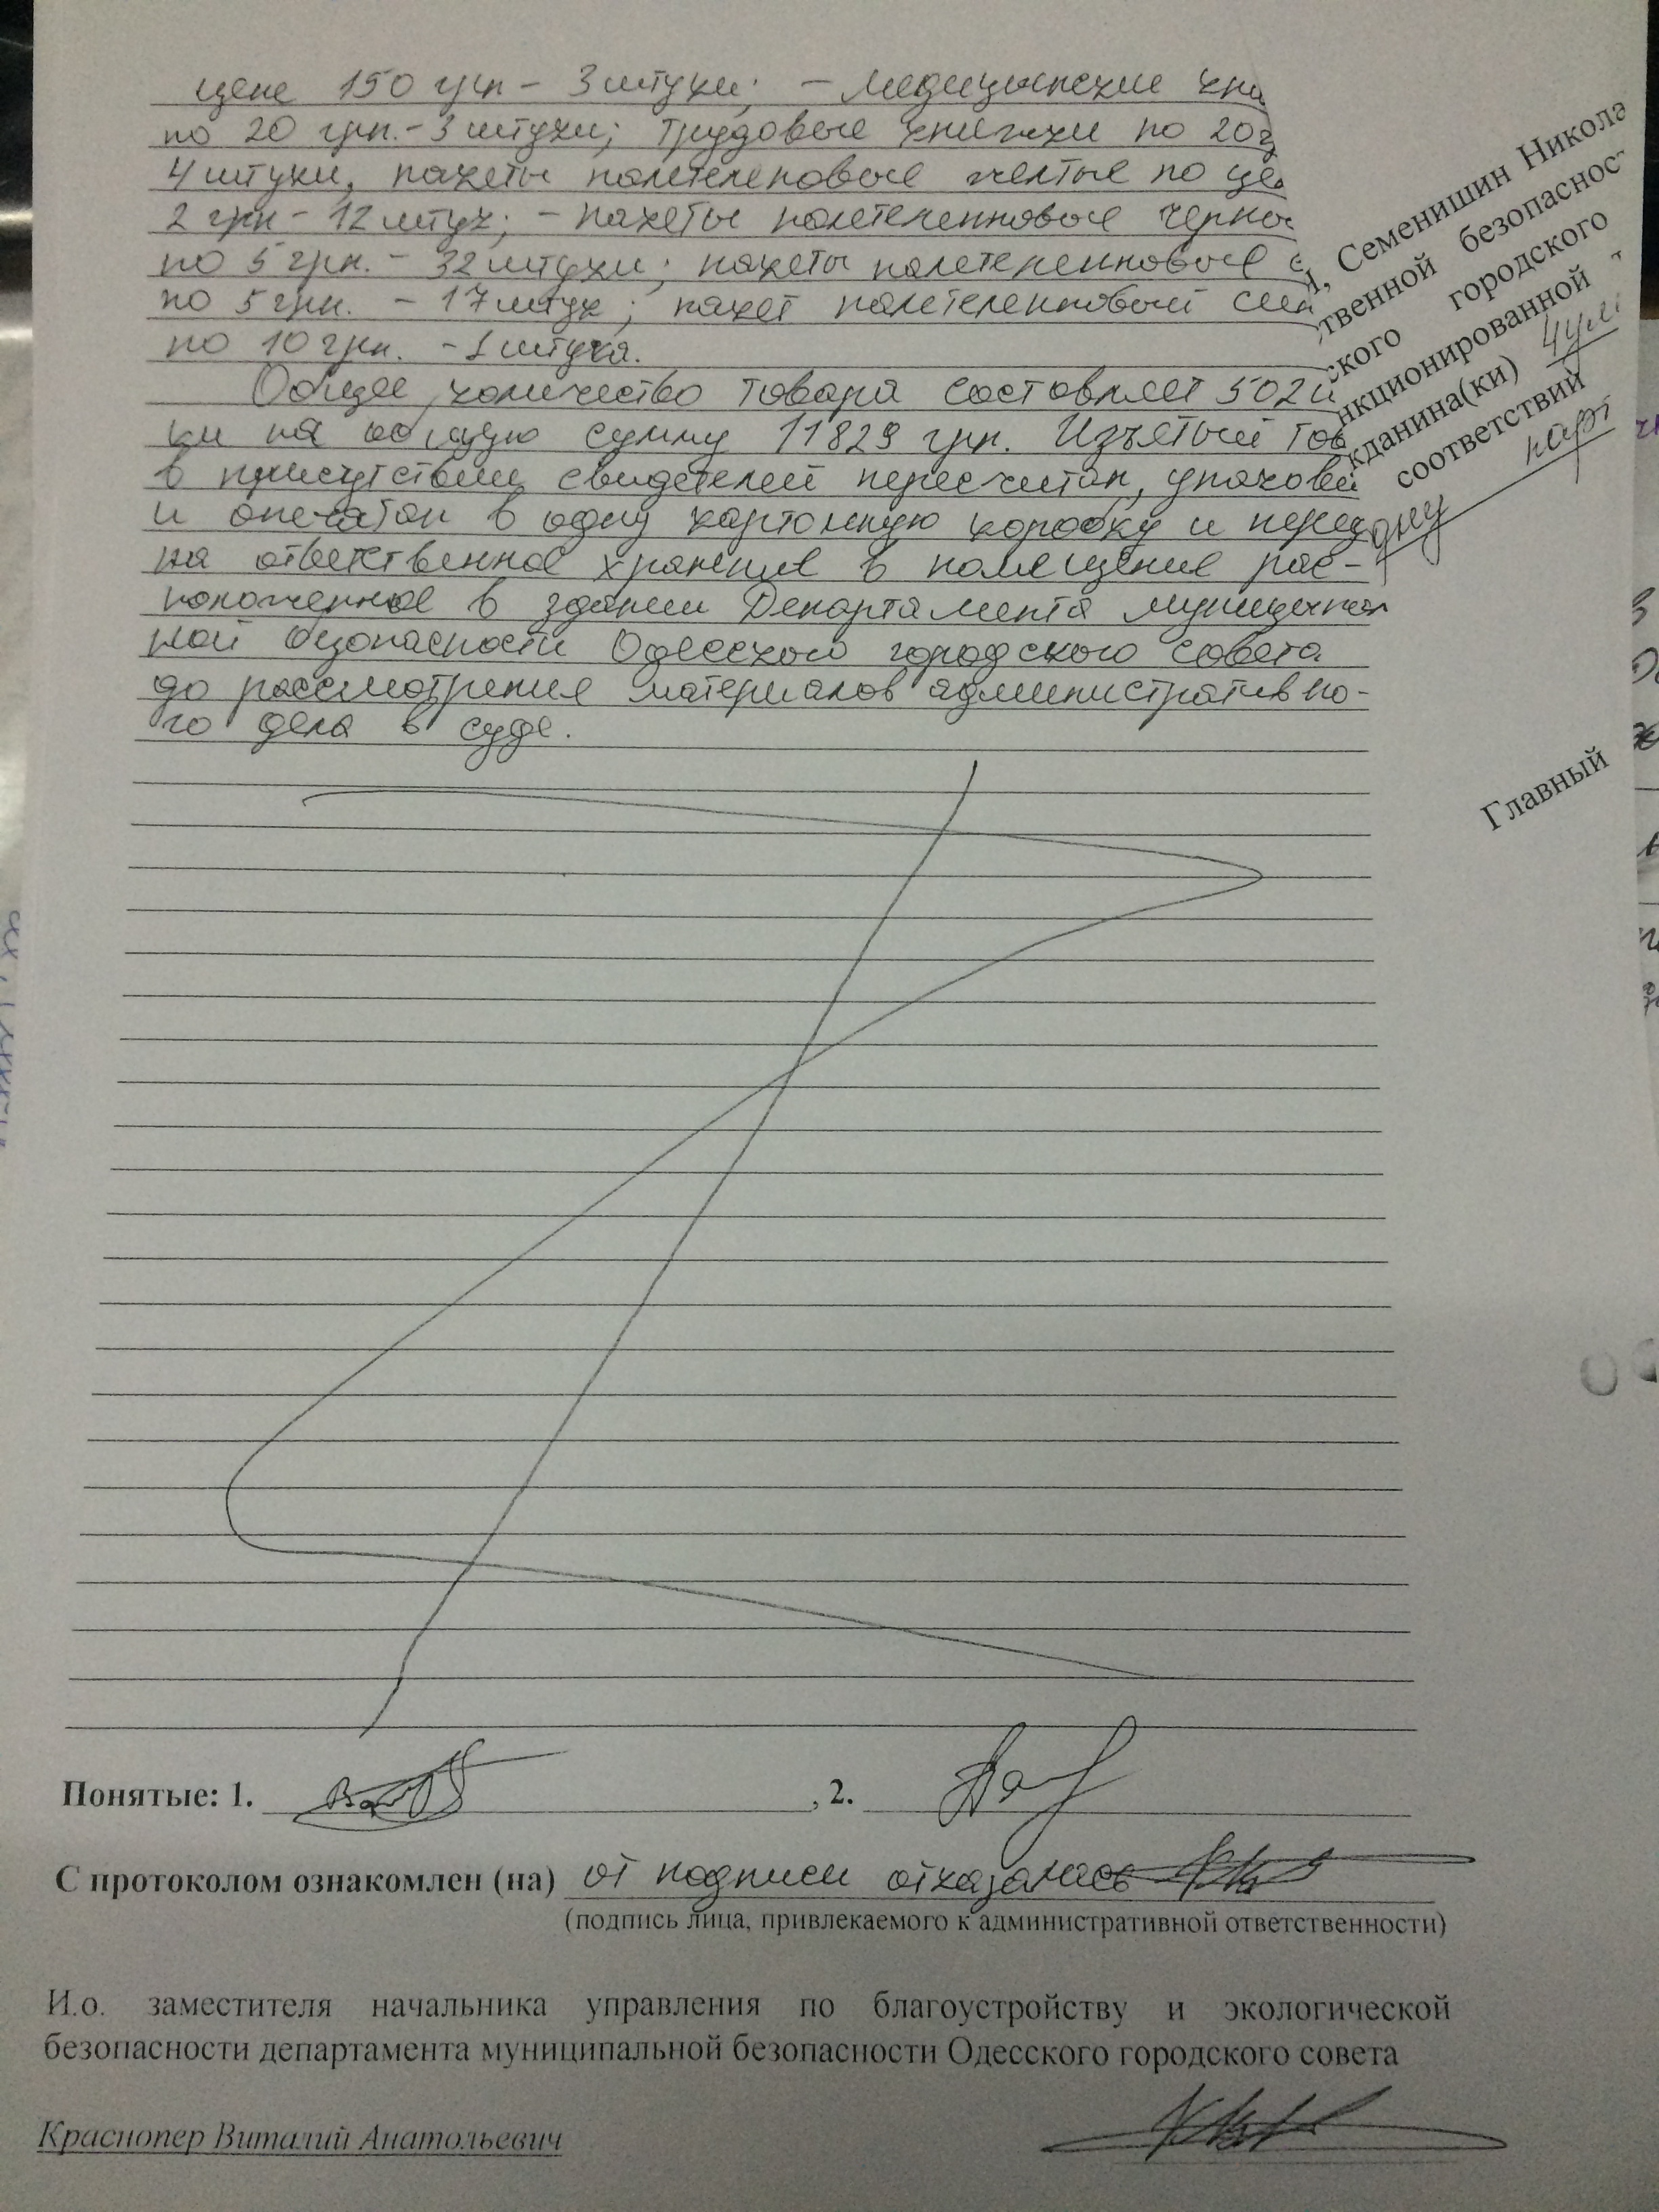 цене 150 грн - 3 штуки; - Медицинские кни
по 20 грн. - 3 штуки; трудовые книжки по 20 г
4 штуки, пакеты полетеленовые желтые по це
2 грн - 12 штук; - пакеты полетеленновые черно
по 5 грн. - 32 штуки; пакеты полетеленновые с
по 5 грн. - 17 штук; пакет полетеленновый син
по 10 грн. - 1 штука.
Общее количество товара составляет 502
ки на общую сумму 11829 грн. Изъятый тов
в присутствии свидетелей пересчитан, упакова
и опечатан в одну картонную коробку и перед
на ответственное хранение в помещение рас-
положенное в здании Департамента муниципаль
ной безопасности Одесского городского совета
до рассмотрения материалов административно-
го дела в суде.
Семенишин Никола
твенной безопаснос
ского городского
нкционированной
жданина(ки)
соответствий
одну
Главный
Понятые: 1. , 2.
С протоколом ознакомлен (на) от подписи отказалась
(подпись лица, привлекаемого к административной ответственности)
И.о. заместителя начальника управления по благоустройству и экологической
безопасности департамента муниципальной безопасности Одесского городского совета
Краснопер Виталий Анатольевич